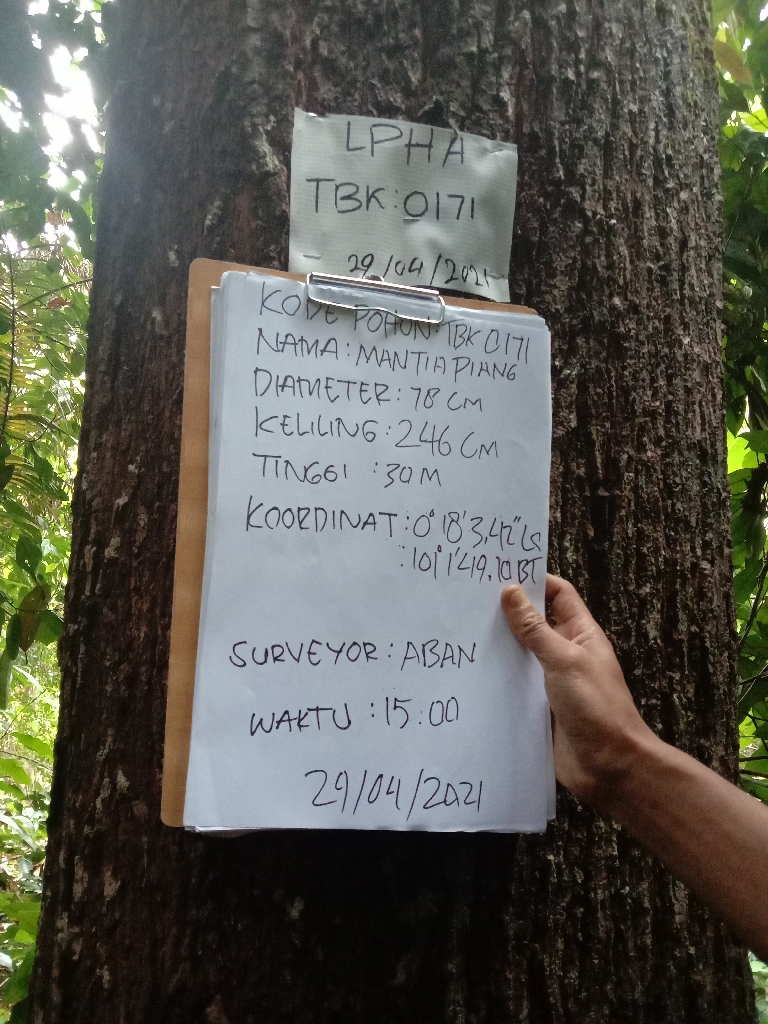 LPHA
TBK: 0171
29/04/2021
KODE POHON: TBK 0171
NAMA: MANTIA PIANG
DIAMETER: 78 CM
KELILING: 246 CM
TINGGI : 30 M
KOORDINAT: 0° 18' 3,42" LS
: 101° 1' 49,70 BT
SURVEYOR: ABAN
WAKTU : 15:00
29/04/2021